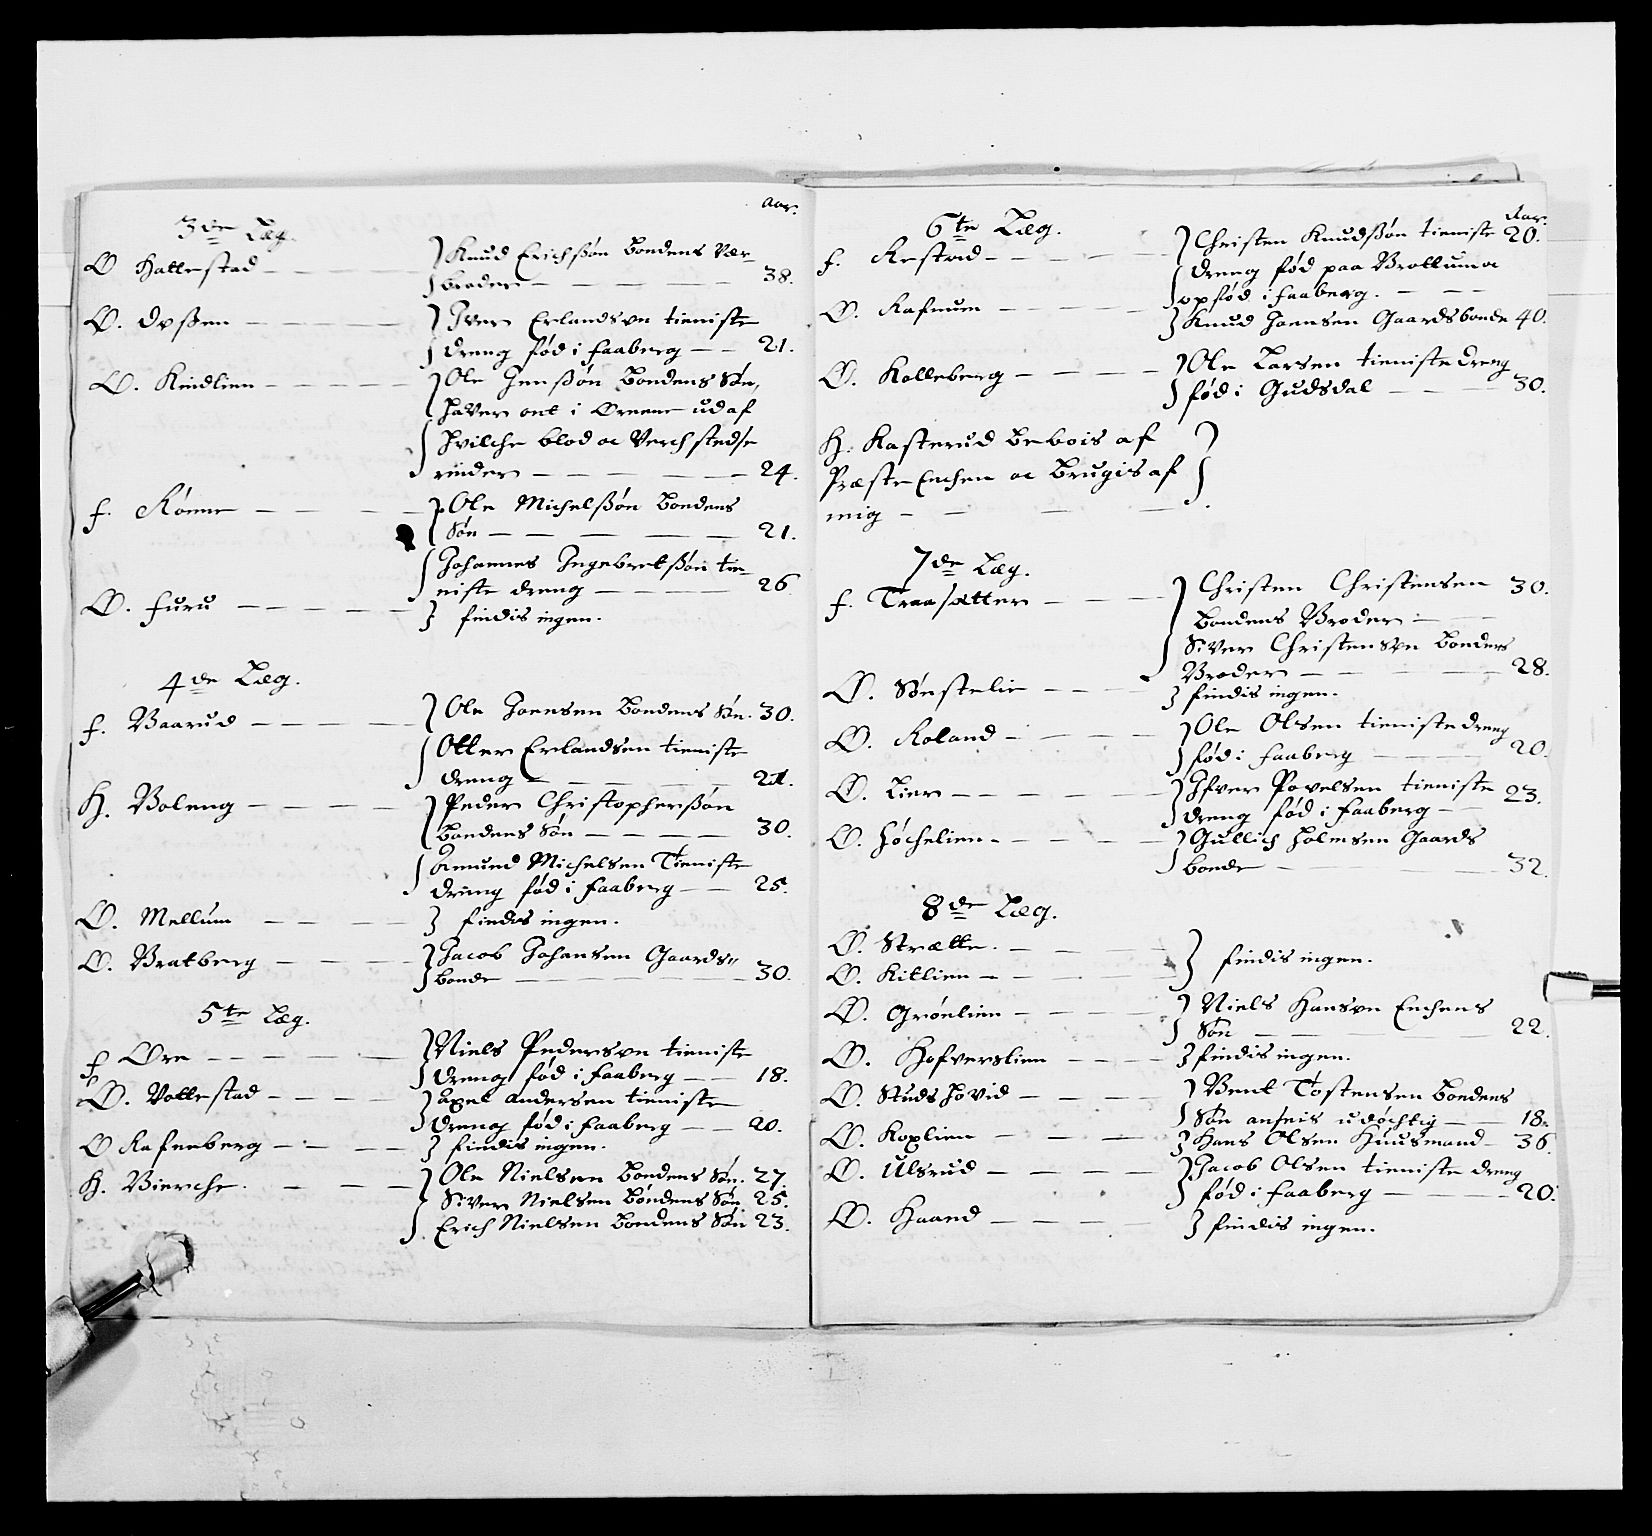 Aar.
3de Læg.
Ø Hattestad
Knud Erichsßøn bondens Vær-
broder 38.
Ø. Opßen
Iver Erlandsen tieniste
dreng fød i faaberg 21.
Ø. Kindlien
Ole Jenßøn Bondens Søn,
haver ont i Ørene ud af
hvilche blod oc
rinder 24.
f. Rønne
Ole Michelßøn Bondens
Søn 21.
Johannes Ingebretßøn tie-
niste dreng 26
Ø. furu
findis ingen.
4de Læg.
f. Baarud
Ole Joensen Bondens Søn. 30.
Otter Erlandsen tieniste
dreng 21.
H. Boleng
Peder Christopherßøn
Bondens Søn 30.
Amund Michelsen Tieniste
dreng fød i faaberg 25.
Ø. Mellum
findis ingen.
Ø. Bratberg
Jacob Johansen Gaards-
bonde 30.
5te Læg.
f Øre
Niels Pedersen tieniste
dreng fød i faaberg 18.
Ø. Vottestad
axel andersen tieniste
dreng fød i faaberg 20.
Ø Rafnberg
findis ingen.
H. Bierche.
Ole Nielsen Bondens Søn. 27.
Siver Nielsen Bondens Søn. 25.
Erich Nielsen Bondens Søn 23.
Aar.
6te Læg.
f. Restad
Christen Knudßøn tieniste 20.
dreng fød paa Brottum oc
opfød i faaberg.
Ø. Rafnum
Knud Joensen Gaardsbonde 40.
Ø. Kolleberg
Ole Larsen tieniste dreng
fød i Gudsdal 30.
H. Kasterud Bebois af
Præste Enchen oc Brugis af
mig
7de Læg.
f. Traasætter
Christen Christensen 30.
Bondens Broder
Siver Christensen Bondens
Broder 28.
Ø. Sønstelie
findis ingen.
Ø. Roland
Ole Olsen tieniste dreng
fød i faaberg 20.
Ø. Lier
Ifver Povelsen tieniste 23.
dreng fød i faaberg
Ø. Jøchelien
Gullich Holmsen Gaards
bonde 32.
8de Læg.
Ø. Strætte.
Ø. Kitlien
findis ingen.
Ø. Grønlien
Niels Hansen Enchens
Søn 22.
Ø. Hofverslien
findis ingen.
Ø. Studshovid
Bent Tostensen Bondens
Søn anseis udøchtig 18.
Ø. Koxlien
Hans Olsen Huusmand 36.
Ø. Ulsrud
Jacob Olsen tieniste dreng
fød i faaberg 20.
Ø. Haand
findis ingen.